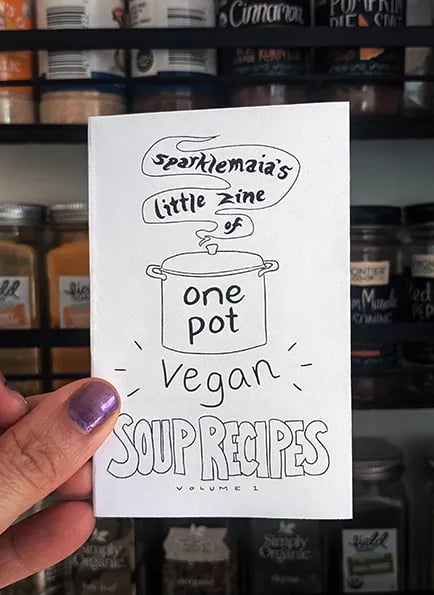 Cinnamon
PUMPKIN
PIE SPICE
sparklemaia's
little zine
of
one
pot
vegan
SOUP RECIPES
VOLUME 1
FRONTIER
CO-OP
SEASONING
Simply
Organic
Simply
Organic
oregano
thyme
field